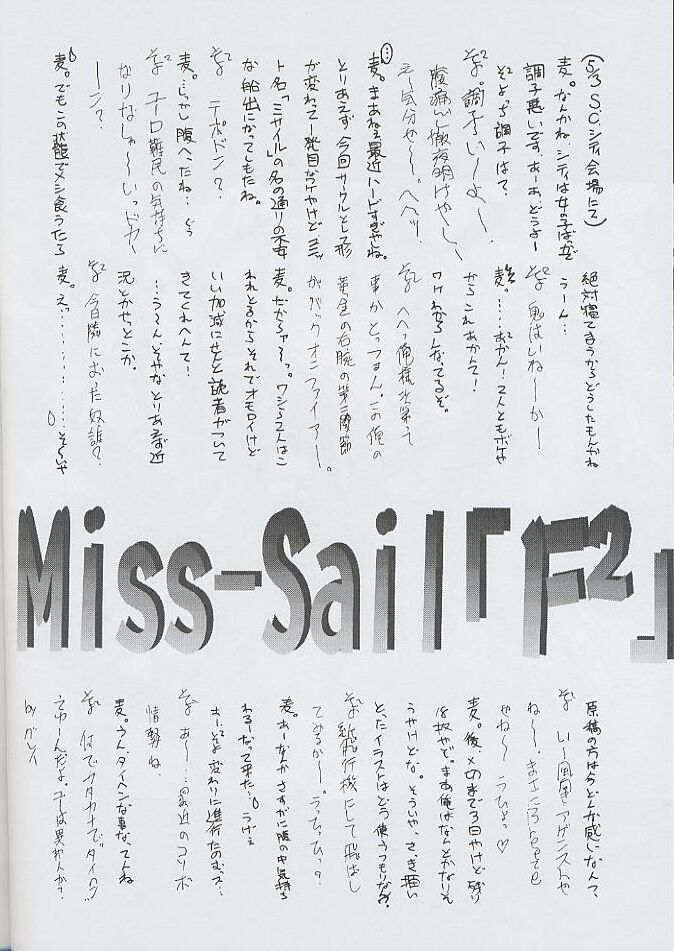 (5/3 S.C.シティ会場にて)
麦。なんかね、シティは女の子ばっかで
調子悪いです。あーあ、どうよー
そよ2ち調子は?
そよ2。調子い〜よ〜、
腹痛いし徹夜明けやし〜
え〜気分ぜ〜。へへッ!
麦。まあねぇ最近ハードすぎやね。
とりあえず今回サークルとして形
が変わって一発目なワケやけど…ミッ
ト名「ミサイル」の名の通りの不安
な船出になってしもたね。
そよ2 テポドン?
麦。…しかし腹へったね…
そよ2 ユーロ難民の気持ちに
なりなしゃ〜いッドカー
ーン?
麦。でもこの状態でメシ食うたら
絶対寝てまうからどうしたもんかね
うーん…
そよ2 鬼はいね〜か〜
麦。……あかん!2人ともボケや
からこれあかんて!
ワケわからんなってるぞ。
そよ2 へへっ俺様お笑って
事かとっつぁん。この俺の
黄金の右腕の第三関節
ががっクオニファイアー。
麦。だからァ〜っ。ワシら2人はこ
われとるからそれでオモロイけど
いい加減にせんと読者がついて
きてくれへんて!
…う〜んそやなとりあえず近
況とかやっとこか。
そよ2 今日隣におった奴誰?
麦。え?………………そ〜いや
Miss-Sail「F2」
原稿の方は今どんな感じなん?、
そよ2 い〜風『アゲンストや
ね〜、まさにBreeze
やね〜うひょっ♡
麦。後、〆切まで3日やけど残り
18枚やで。まあ俺はなんとかなりそ
うやけどな。そういや、さっき描い
とったイラストはどう使うつもりなん?
そよ2 紙飛行機にして飛ばし
てみるか〜。うひひっ?
麦。あーなんかさすがに腹の中気持ち
わるーなって来た…うげぇ
そよ2変わりに進行たのむ…ズ…
そよ2 あ〜…最近のコソボ
情勢ね、
麦。うん、タイヘンな事なってんね
そよ2 何でカタカナで"タイヘン"
てゆーんだよ。
by ガレイ